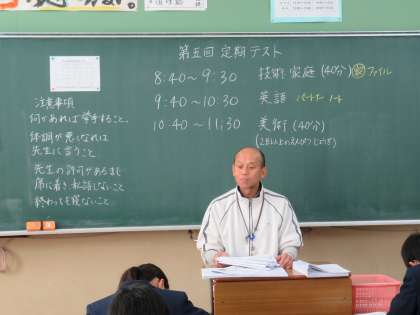 第五回 定期テスト
8:40～9:30 技術・家庭(40分) ファイル
9:40～10:30 英語 パートナー ノート
10:40～11:30 美術(40分)
注意事項
何かあれば挙手すること。
体調が悪くなれば
先生に言うこと
先生の許可があるまで
席に着き、私語しないこと
終わっても寝ないこと